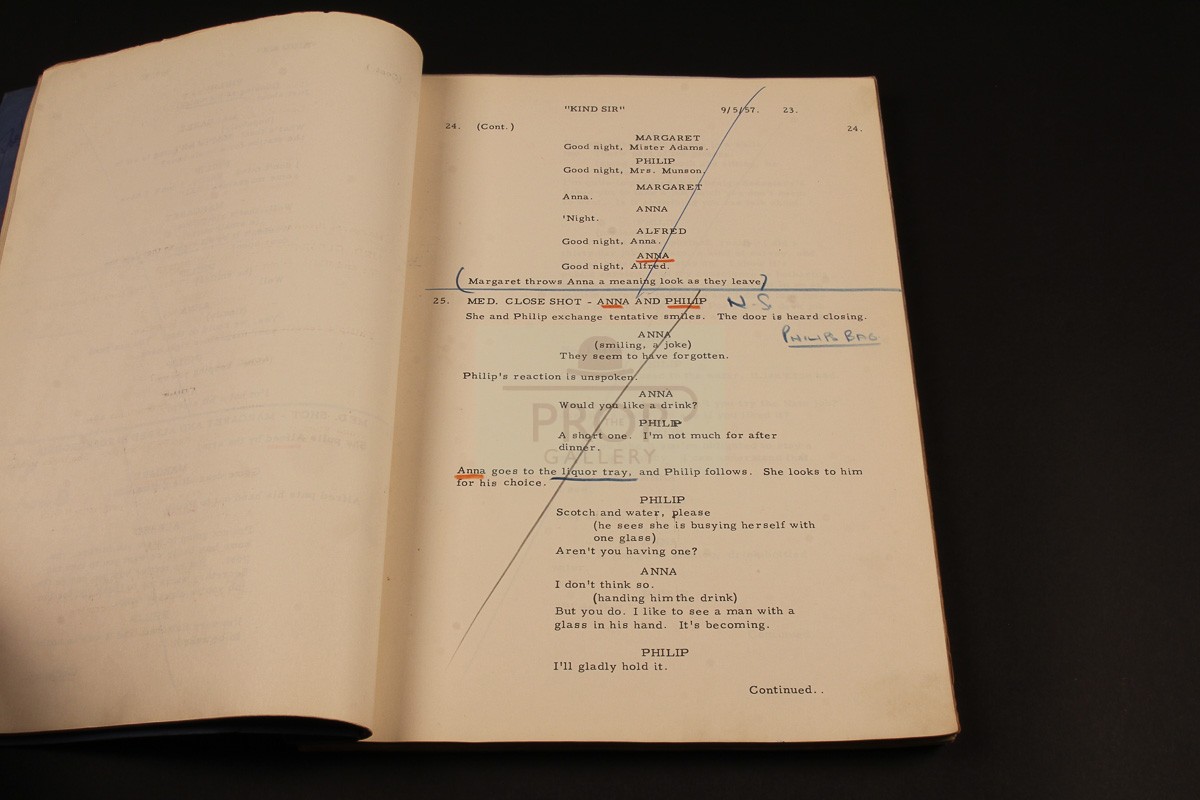 "KIND SIR" 9/5/57. 23.
24. (Cont.) 24.
MARGARET
Good night, Mister Adams.
PHILIP
Good night, Mrs. Munson.
MARGARET
Anna.
ANNA
'Night.
ALFRED
Good night, Anna.
ANNA
Good night, Alfred.
(Margaret throws Anna a meaning look as they leave)
25. MED. CLOSE SHOT - ANNA AND PHILIP N.S
She and Philip exchange tentative smiles. The door is heard closing.
PHILIPS BAG
ANNA
(smiling, a joke)
They seem to have forgotten.
Philip's reaction is unspoken.
ANNA
Would you like a drink?
PHILIP
A short one. I'm not much for after
dinner.
THE PROP GALLERY
Anna goes to the liquor tray, and Philip follows. She looks to him
for his choice.
PHILIP
Scotch and water, please
(he sees she is busying herself with
one glass)
Aren't you having one?
ANNA
I don't think so.
(handing him the drink)
But you do. I like to see a man with a
glass in his hand. It's becoming.
PHILIP
I'll gladly hold it.
Continued..